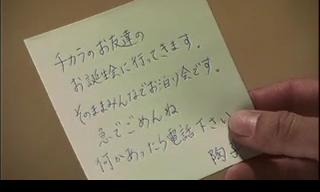 チカラのお友達の
お誕生会に行ってきます。
そのままみんなでお泊り会です。
急でごめんね
何かあったら電話下さい
陶